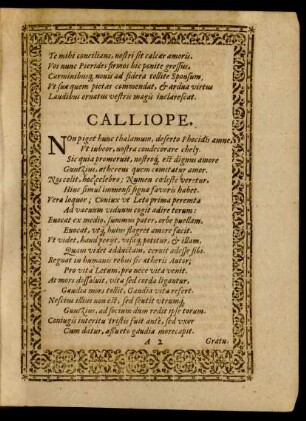 Te mihi concilians, nostri sit calcar amoris.
Vos nunc Pierides firmos hîc ponite gressus,
Carminibusq; novis ad sidera tollite Sponsum,
Vt sua quem pietas commendat, & ardua virtus
Laudibus ornatus vestris magis inclarescat.
CALLIOPE.
NOn piget hunc thalamum, deserto Phocidis amne,
Vt iubeor, nostrâ condecorare chely.
Sic quia promeruit, nostroq; est dignus amore
Guntzius, æthereus quem comitatur amor.
Nos colit, hoc celebro; Numen cœleste veretur,
Hinc simul immensi signa favoris habet.
Vera loquor; Coniux vt Leto prima peremta
Ad vacuum viduum cogit adire torum:
Euocat ex medio, summus pater, orbe puellam.
Euocat, vtq; hunc flagret amore facit.
Vt videt, hanc perit, visâq; potitur, & illam,
Quam videt adductam, cernit adesse sibi.
Regnat in humanis rebus sic ætheris Autor;
Pro vita Letum, pro nece vita venit.
At mors dissoluit, vita sed corda ligantur.
Gaudia mors tollit, Gaudia vita refert.
Nescius illius non est, sed sentit vtrumq;
Guntzius, ad socium dum redit ipse torum.
Coniugis interitu tristis fuit antè, sed vxor
Cum datur, assueto gaudia more capit.
A 2 Gratu-